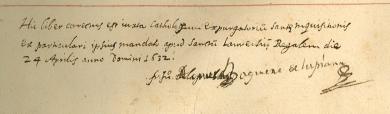 Hic liber correctus est iuxta Catholicum expurgatorium sanctæ inquisitionis
ex particulari ipsius mandato apud Sanctum Laurentium Regalem die
24 Aprilis anno Domini 1632.
fr. Ju.